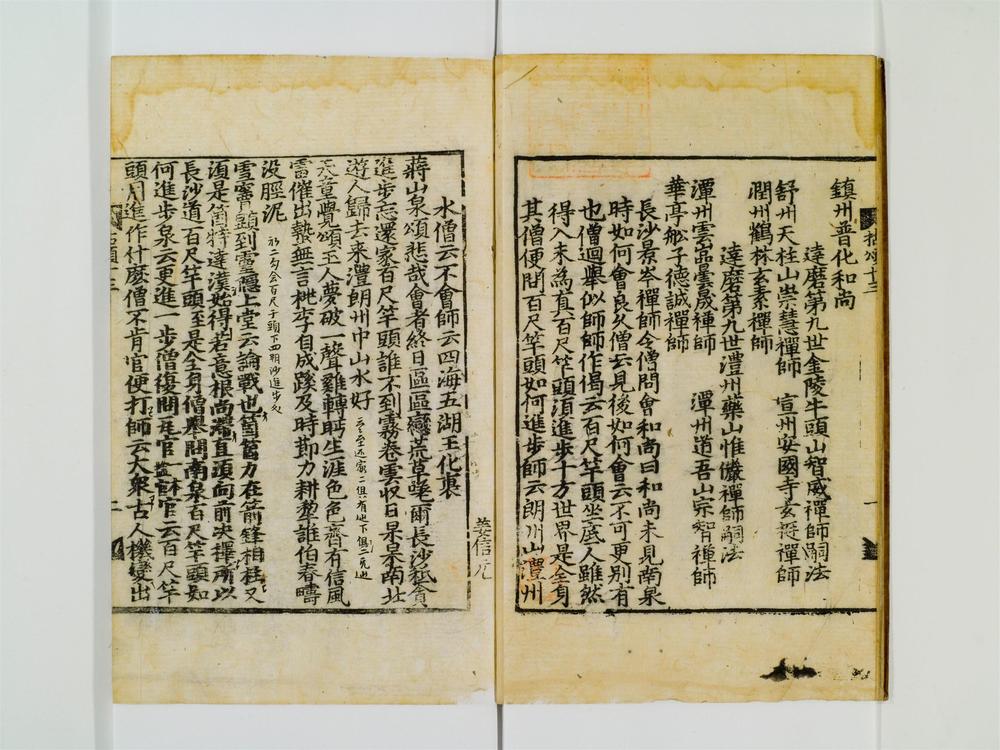 鎮州普化和尚
達磨第九世金陵牛頭山智威禪師嗣法
舒州天柱山崇慧禪師 宣州安國寺玄挺禪師
潤州鶴林玄素禪師
達磨第九世澧州藥山惟儼禪師嗣法
潭州雲嵒曇晟禪師 潭州道吾山宗智禪師
華亭舩子德誠禪師
長沙景岑禪師令僧問會和尚曰和尚未見南泉
時如何會良久僧云見後如何會云不可更別有
也僧迴舉似師師作偈云百尺竿頭坐底人雖然
得入未為真百尺竿頭須進步十方世界是全身
其僧便問百尺竿頭如何進步師云朗州山澧州
水僧云不會師云四海五湖王化裏
蔣山泉頌悲哉會者終日區區臠荒草㬠爾長沙秪貪
進步忘還家百尺竿頭誰不到霧卷雲収日杲杲南北
遊人歸去來澧朗州中山水好
天童覺頌玉人夢破一聲雞轉眄生涯色色齊有信風
雷催出蟄無言桃李自成蹊及時節力耕犂誰怕春疇
没脛泥
雪竇顯到靈隱上堂云論戰也箇箇力在箭鋒相拄又
須是箇特達漢始得若意根尚滯直須向前決擇所以
長沙道百尺竿頭至是全身僧舉問南泉百尺竿頭如
何進步泉云更進一步僧復問一官云百尺竿
頭用進作什麽僧不肯官便打師云大衆古人機變出
拈頌十三
一
姜信元